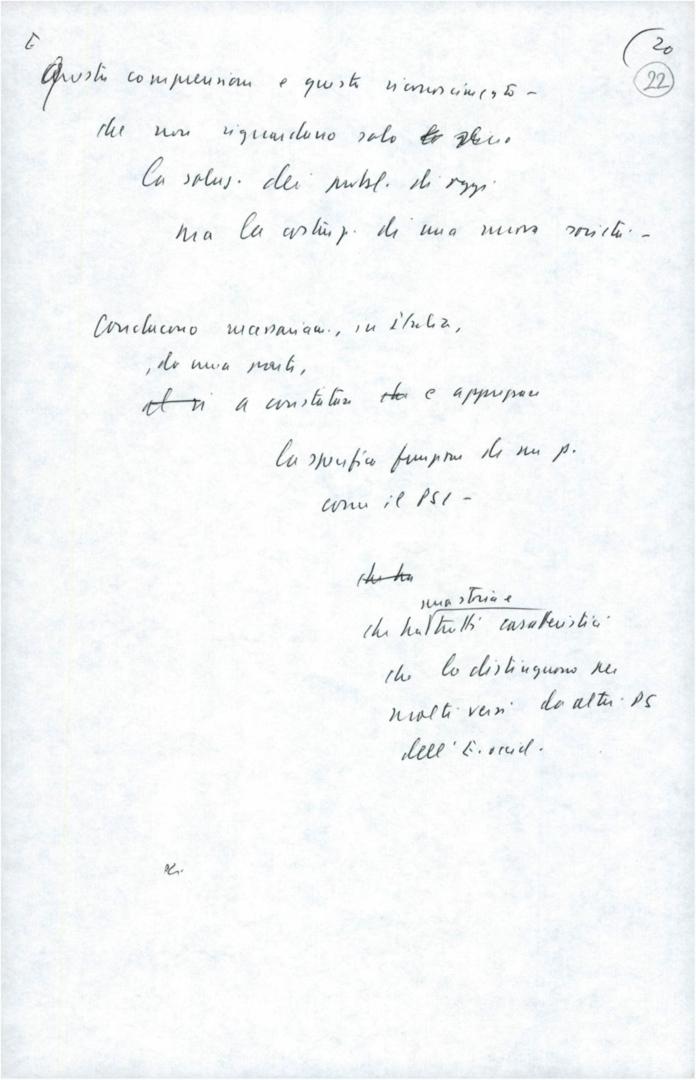 E
20
22
Questa comprensione e questo riconoscimento -
che non riguardano solo
la soluz. dei probl. di oggi
ma la costruz. di una nuova società. -
Conducono necessariam., in Italia,
, da una parte,
a constatare che e apprezzare
la specifica funzione di un p.
come il PSI -
che ha
una storia e
che ha tratti caratteristici
che lo distinguono per
molti versi da altri PS
dell' E. occid.